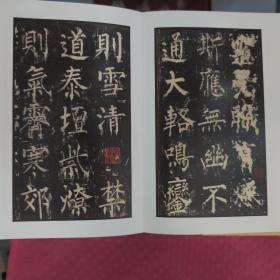 有感
斯應無幽不
通大輅鳴鑾
則雪清禁
道泰壇式燎
則氣霽寒郊